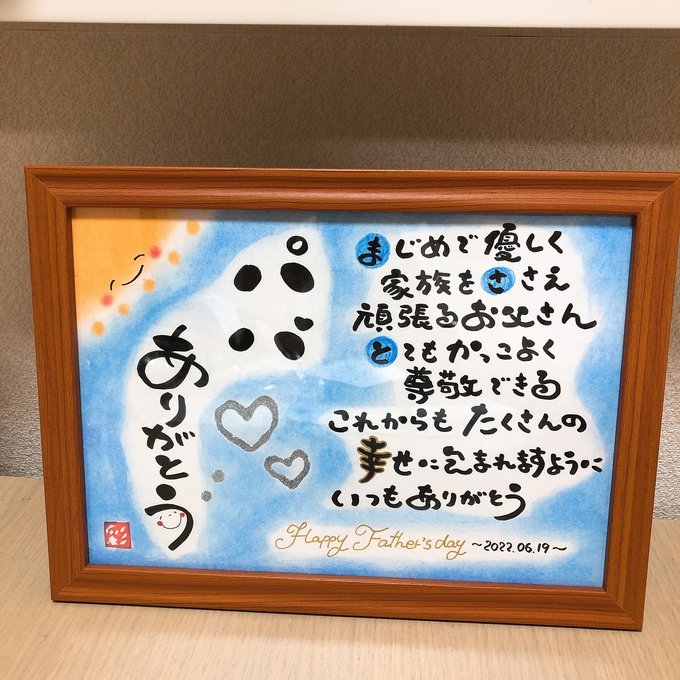 パパ
ありがとう
まじめで優しく
家族をささえ
頑張るお父さん
とてもかっこよく
尊敬できる
これからもたくさんの
幸せに包まれますように
いつもありがとう
Happy Father's day ~2022.06.19~